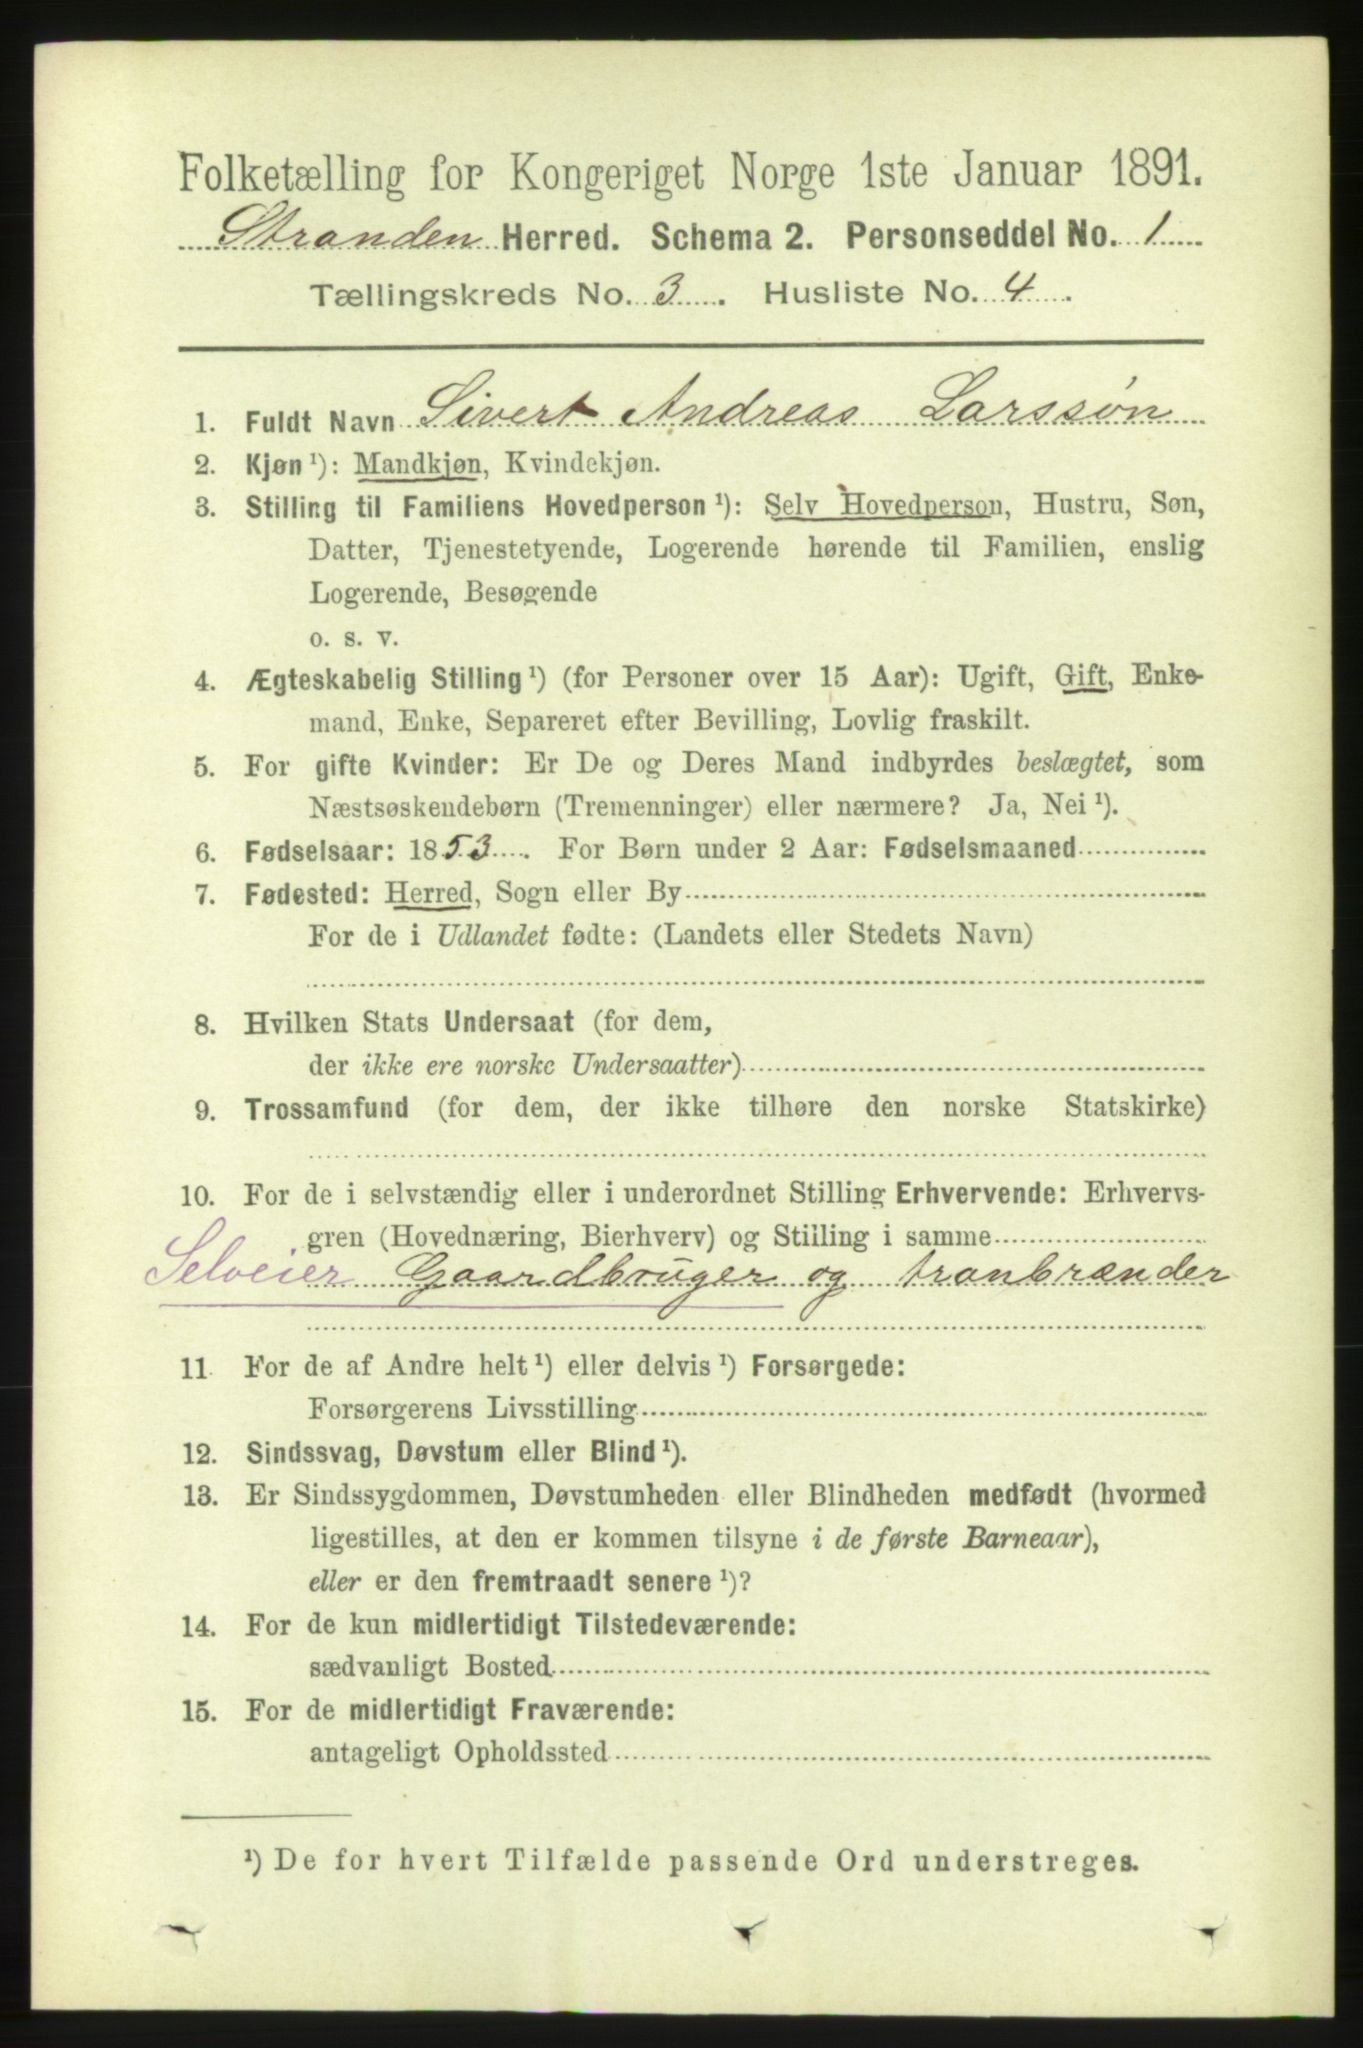 Folketælling for Kongeriget Norge 1ste Januar 1891.
Stranden Herred. Schema 2. Personseddel No. 1
Tællingskreds No. 3. Husliste No. 4.
1. Fuldt Navn Sivert Andreas Larssøn
2. Kjøn ¹): Mandkjøn, Kvindekjøn.
3. Stilling til Familiens Hovedperson ¹): Selv Hovedperson, Hustru, Søn,
Datter, Tjenestetyende, Logerende hørende til Familien, enslig
Logerende, Besøgende
o. s. v.
4. Ægteskabelig Stilling ¹) (for Personer over 15 Aar): Ugift, Gift, Enke-
mand, Enke, Separeret efter Bevilling, Lovlig fraskilt.
5. For gifte Kvinder: Er De og Deres Mand indbyrdes beslægtet, som
Næstsøskendebørn (Tremenninger) eller nærmere? Ja, Nei ¹).
6. Fødselsaar: 1853. For Børn under 2 Aar: Fødselsmaaned
7. Fødested: Herred, Sogn eller By
For de i Udlandet fødte: (Landets eller Stedets Navn)
8. Hvilken Stats Undersaat (for dem,
der ikke ere norske Undersaatter)
9. Trossamfund (for dem, der ikke tilhøre den norske Statskirke)
10. For de i selvstændig eller i underordnet Stilling Erhvervende: Erhvervs-
gren (Hovednæring, Bierhverv) og Stilling i samme
Selveier Gaardbruger og tranbrænder
11 For de af Andre helt ¹) eller delvis ¹) Forsørgede:
Forsørgerens Livsstilling
12. Sindssvag, Døvstum eller Blind ¹).
13. Er Sindssygdommen, Døvstumheden eller Blindheden medfødt (hvormed
ligestilles, at den er kommen tilsyne i de første Barneaar),
eller er den fremtraadt senere ¹)?
14. For de kun midlertidigt Tilstedeværende:
sædvanligt Bosted
15. For de midlertidigt Fraværende:
antageligt Opholdssted
¹) De for hvert Tilfælde passende Ord understreges.